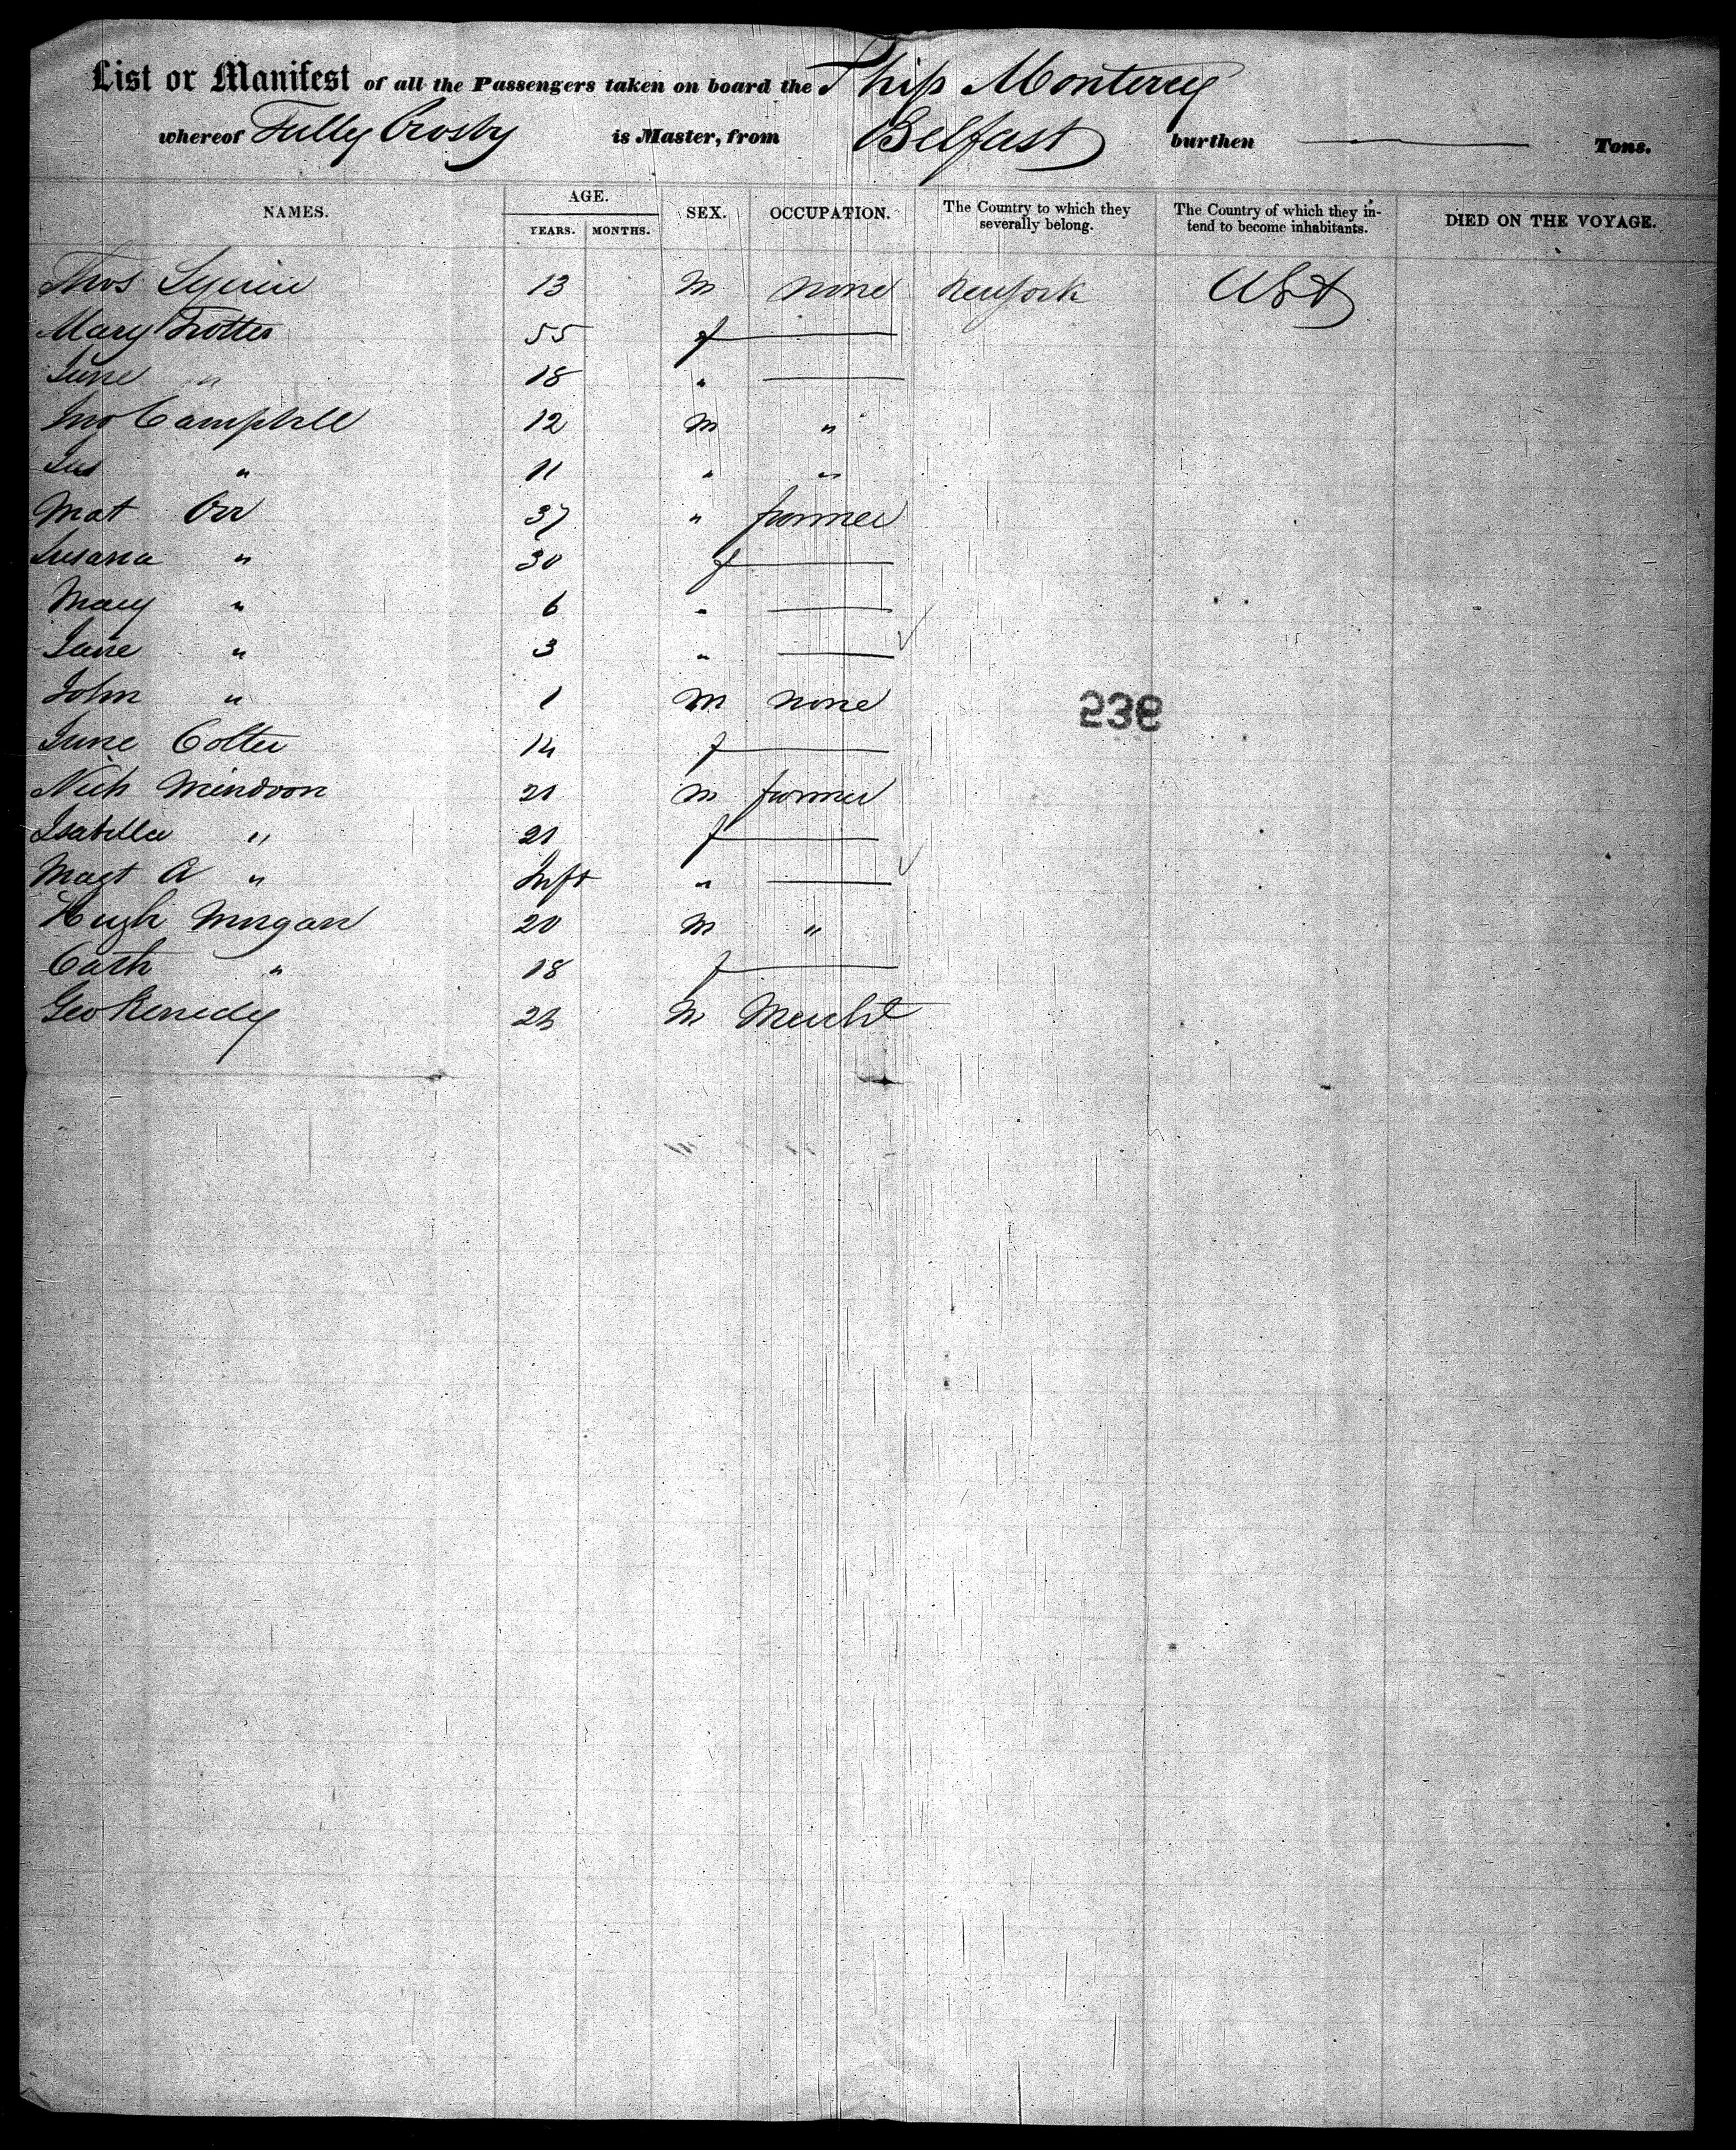 List or Manifest of all the Passengers taken on board the Ship Monterey
whereof Tully Crosby is Master, from Belfast burthen Tons.
NAMES. AGE. YEARS. MONTHS. SEX. OCCUPATION. The Country to which they severally belong. The Country of which they intend to become inhabitants. DIED ON THE VOYAGE.
Thos 13 m none New York USA
Mary Trotter 55 f
Jane " 18 "
Jno Campbell 12 m "
Jas " 11 " "
Mat Orr 37 " farmer
Susana " 30 f
Mary " 6 "
Jane " 3 "
John " 1 m none
Jane Colter 14 f
Nich 21 m farmer
Isabella " 21 f
Magt A " Inft "
Hugh Morgan 20 m "
Cath " 18 f
Geo Kenedy m Mercht